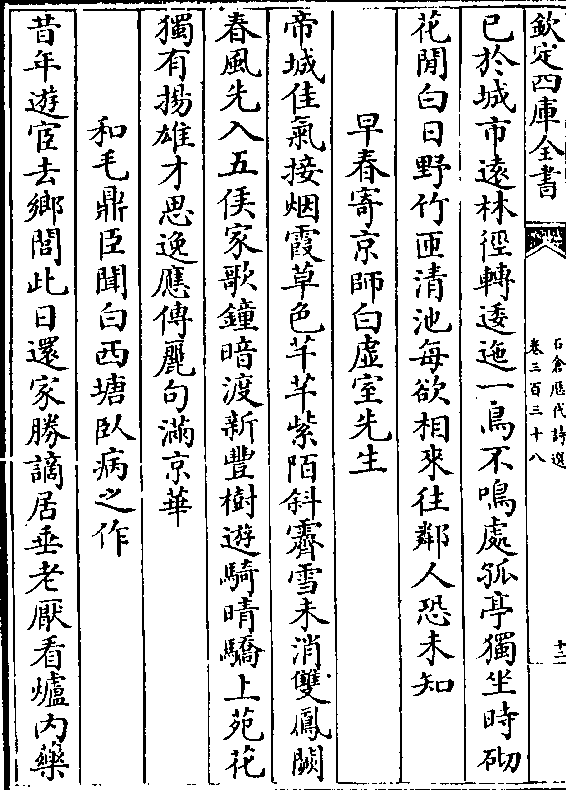 欽定四庫全書
石倉歷代詩選
卷三百三十八
十二
已於城市遠林徑轉逶迤一鳥不鳴處孤亭獨坐時砌
花閒白日野竹匝清池每欲相來往鄰人恐未知
早春寄京師白虛室先生
帝城佳氣接烟霞草色芊芊紫陌斜霽雪未消雙鳳闕
春風先入五侯家歌鐘暗渡新豐樹遊騎晴驕上苑花
獨有揚雄才思逸應傳麗句滿京華
和毛鼎臣聞白西塘臥病之作
昔年遊宦去鄉閭此日還家勝謫居垂老厭看爐內藥